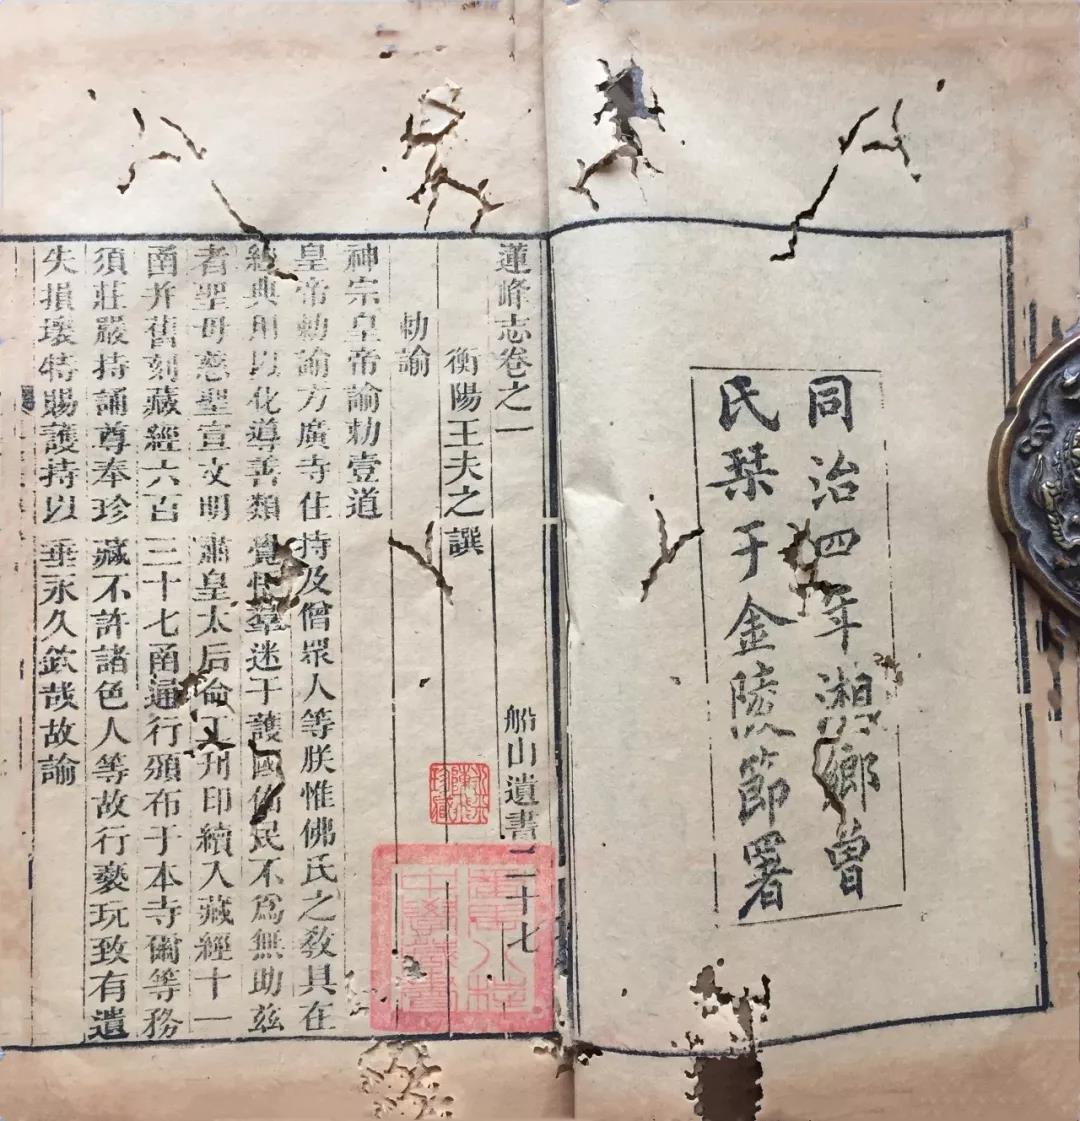 同治四年湘鄉曾
氏栞于金陵節署
蓮峰志卷之一 船山遺書二十七
衡陽王夫之譔
勅諭
神宗皇帝諭勅壹道
皇帝勅諭方廣寺住持及僧眾人等朕惟佛氏之敎具在
經典用以化導善類覺悟羣迷于護國佑民不爲無助茲
者聖母慈聖宣文明肅皇太后命工刊印續入藏經十一
函并舊刻藏經六百三十七函通行頒布于本寺爾等務
須莊嚴持誦尊奉珍藏不許諸色人等故行褻玩致有遺
失損壞特賜護持以垂永久欽哉故諭